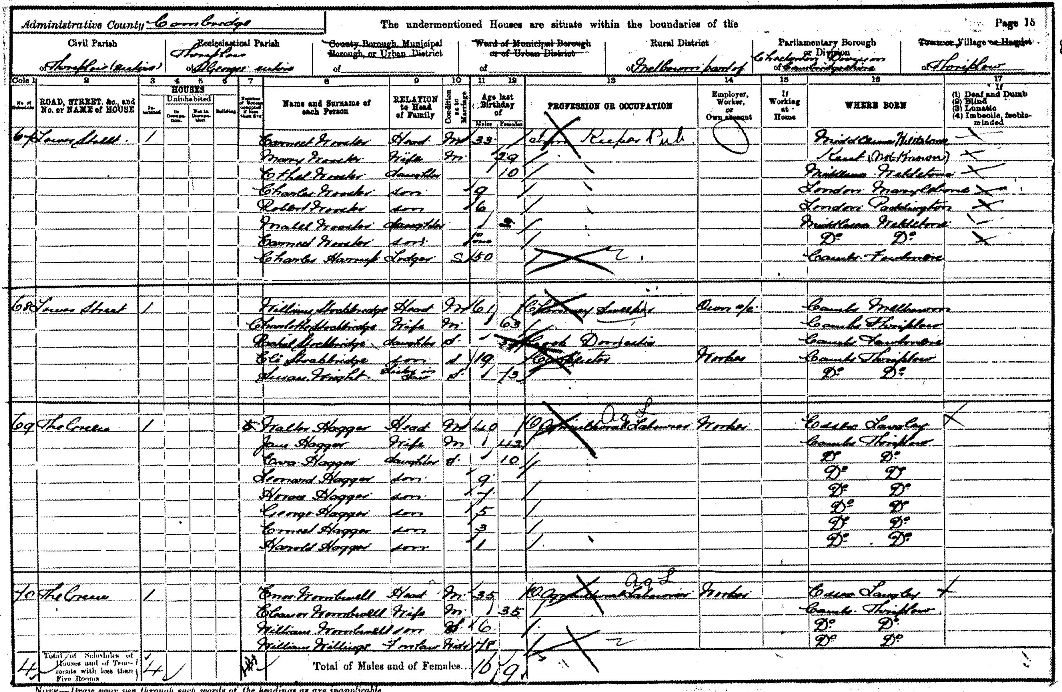 Administrative County Cambridge The undermentioned Houses are situate within the boundaries of the Page 15
Civil Parish Ecclesiastical Parish County Borough, Municipal Borough, or Urban District Ward of Municipal Borough or of Urban District Rural District Parliamentary Borough or Division Town or Village or Hamlet
of Thriplow (entire) of Thriplow St George entire of of of Melbourn part of of Chesterton Division Cambridgeshire of Thriplow
Cols. 1 2 3 4 5 6 7 8 9 10 11 12 13 14 15 16 17
No. of Schedule ROAD, STREET, &c., and No. or NAME of HOUSE HOUSES Inhabited Uninhabited In Occupation Not in Occupation Building Name and Surname of each Person RELATION to Head of Family Condition as to Marriage Age last Birthday of Males Females PROFESSION OR OCCUPATION Employer, Worker, or Own account If Working at Home WHERE BORN If (1) Deaf and Dumb (2) Blind (3) Lunatic (4) Imbecile, feeble-minded
67 Lower Street 1 Head M 33 Inn Keeper Pub Middlesex
Mary Wife M 29 Kent (Not Known)
Ethel daughter 10 Middlesex Wealdstone
Charles son 9 London Marylebone
Robert son 6 London Paddington
Mabel daughter 2 Middlesex Wealdstone
son Do Do
Charles Lodger S 50 Cambs Fowlmere
68 Lower Street 1 William Stockbridge Head M 61 Chimney Sweeper Own a/c Cambs Melbourn
Charlotte Stockbridge Wife M 63 Cambs Thriplow
Rachel Stockbridge daughter S Cook Domestic Cambs Fowlmere
Eli Stockbridge son S 19 Worker Cambs Thriplow
Susan Wright Sister in law S 73 Do Do
69 The Green 1 5 Walter Hagger Head M 40 Agricultural Labourer Ag L Worker Essex Langley
Jane Hagger Wife M 42 Cambs Thriplow
Eva Hagger daughter S 10 Do Do
Leonard Hagger son 9 Do Do
Horace Hagger son 7 Do Do
George Hagger son 5 Do Do
Ernest Hagger son 3 Do Do
Harold Hagger son 1 Do Do
70 The Green 1 Enos Wombwell Head M 35 Agricultural Labourer Ag L Worker Essex Langley
Eleanor Wombwell Wife M 35 Cambs Thriplow
William Wombwell son 6 Do Do
William Willings Do Do
4 Total of Schedules of Houses and of Tenements with less than Five Rooms 4 Total of Males and of Females... 16 9
NOTE—Draw your pen through such words of the headings as are inapplicable.